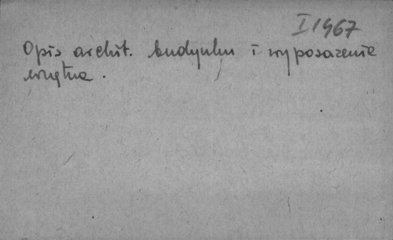 I 1967
Opis archit. budynku i wyposażenie
wnętrza.